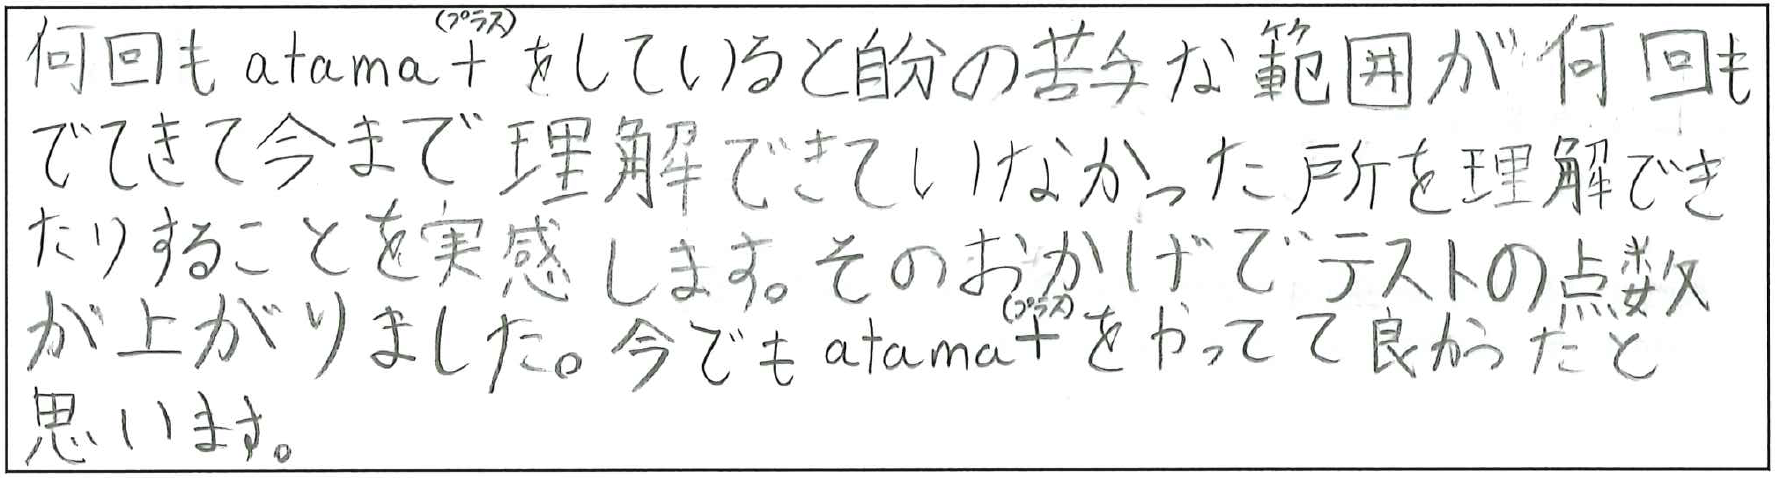 何回もatama+(プラス)をしていると自分の苦手な範囲が何回も
でてきて今まで理解できていなかった所を理解でき
たりすることを実感します。そのおかげでテストの点数
が上がりました。今でもatama+(プラス)をやってて良かったと
思います。